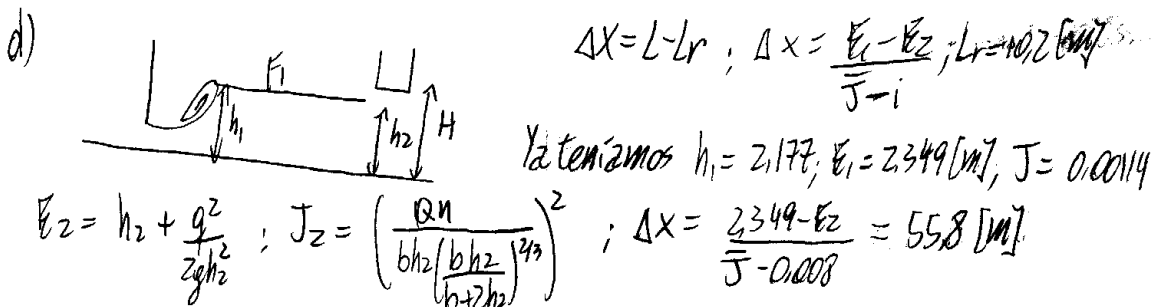 d)
ΔX = L-Lr ; ΔX = (E₁-E₂)/(J̄-i) ; Lr = 10,2 [m]
F₁
h₁
h₂ H
Ya teníamos h₁ = 2,177; E₁ = 2,349 [m], J = 0,00114
E₂ = h₂ + q²/(2gh₂²) ; J₂ = (Qn/(bh₂(bh₂/(b+2h₂))^(2/3)))² ; ΔX = (2,349-E₂)/(J̄-0,008) = 55,8 [m].